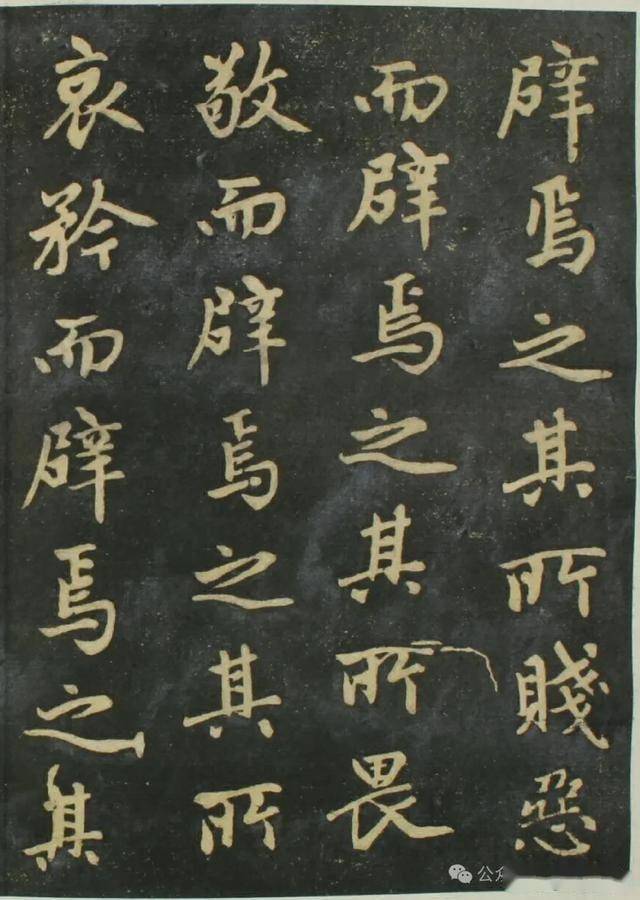 辟焉之其所賤惡
而辟焉之其所畏
敬而辟焉之其所
哀矜而辟焉之其
公众